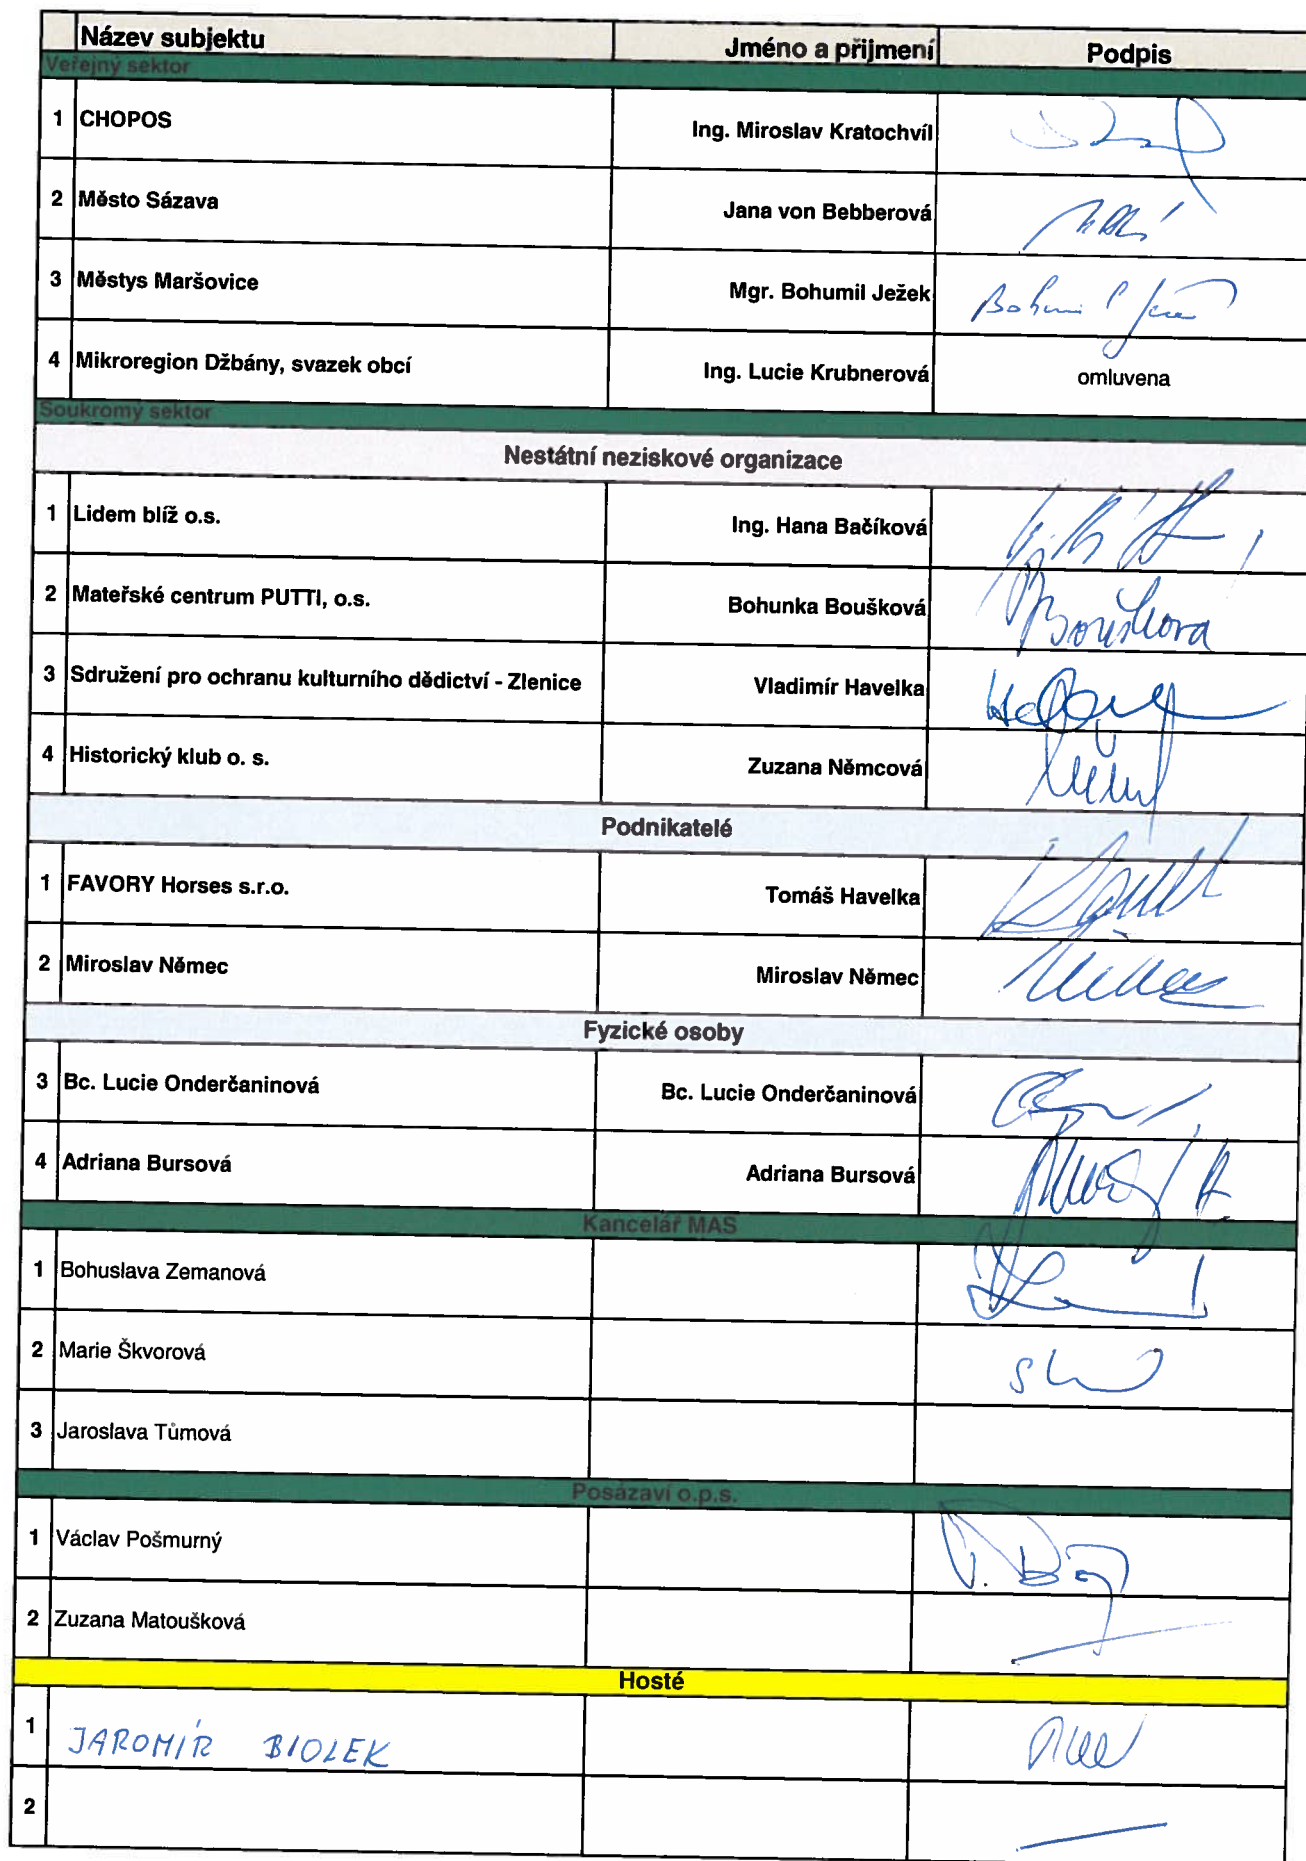 Název subjektu Jméno a přijmení Podpis
Veřejný sektor
1 CHOPOS Ing. Miroslav Kratochvíl
2 Město Sázava Jana von Bebberová
3 Městys Maršovice Mgr. Bohumil Ježek
4 Mikroregion Džbány, svazek obcí Ing. Lucie Krubnerová omluvena
Soukromý sektor
Nestátní neziskové organizace
1 Lidem blíž o.s. Ing. Hana Bačíková
2 Mateřské centrum PUTTI, o.s. Bohunka Boušková Boušková
3 Sdružení pro ochranu kulturního dědictví - Zlenice Vladimír Havelka
4 Historický klub o. s. Zuzana Němcová
Podnikatelé
1 FAVORY Horses s.r.o. Tomáš Havelka
2 Miroslav Němec Miroslav Němec
Fyzické osoby
3 Bc. Lucie Onderčaninová Bc. Lucie Onderčaninová
4 Adriana Bursová Adriana Bursová
Kancelář MAS
1 Bohuslava Zemanová
2 Marie Škvorová
3 Jaroslava Tůmová
Posázaví o.p.s.
1 Václav Pošmurný
2 Zuzana Matoušková
Hosté
1 JAROMÍR BIOLEK
2